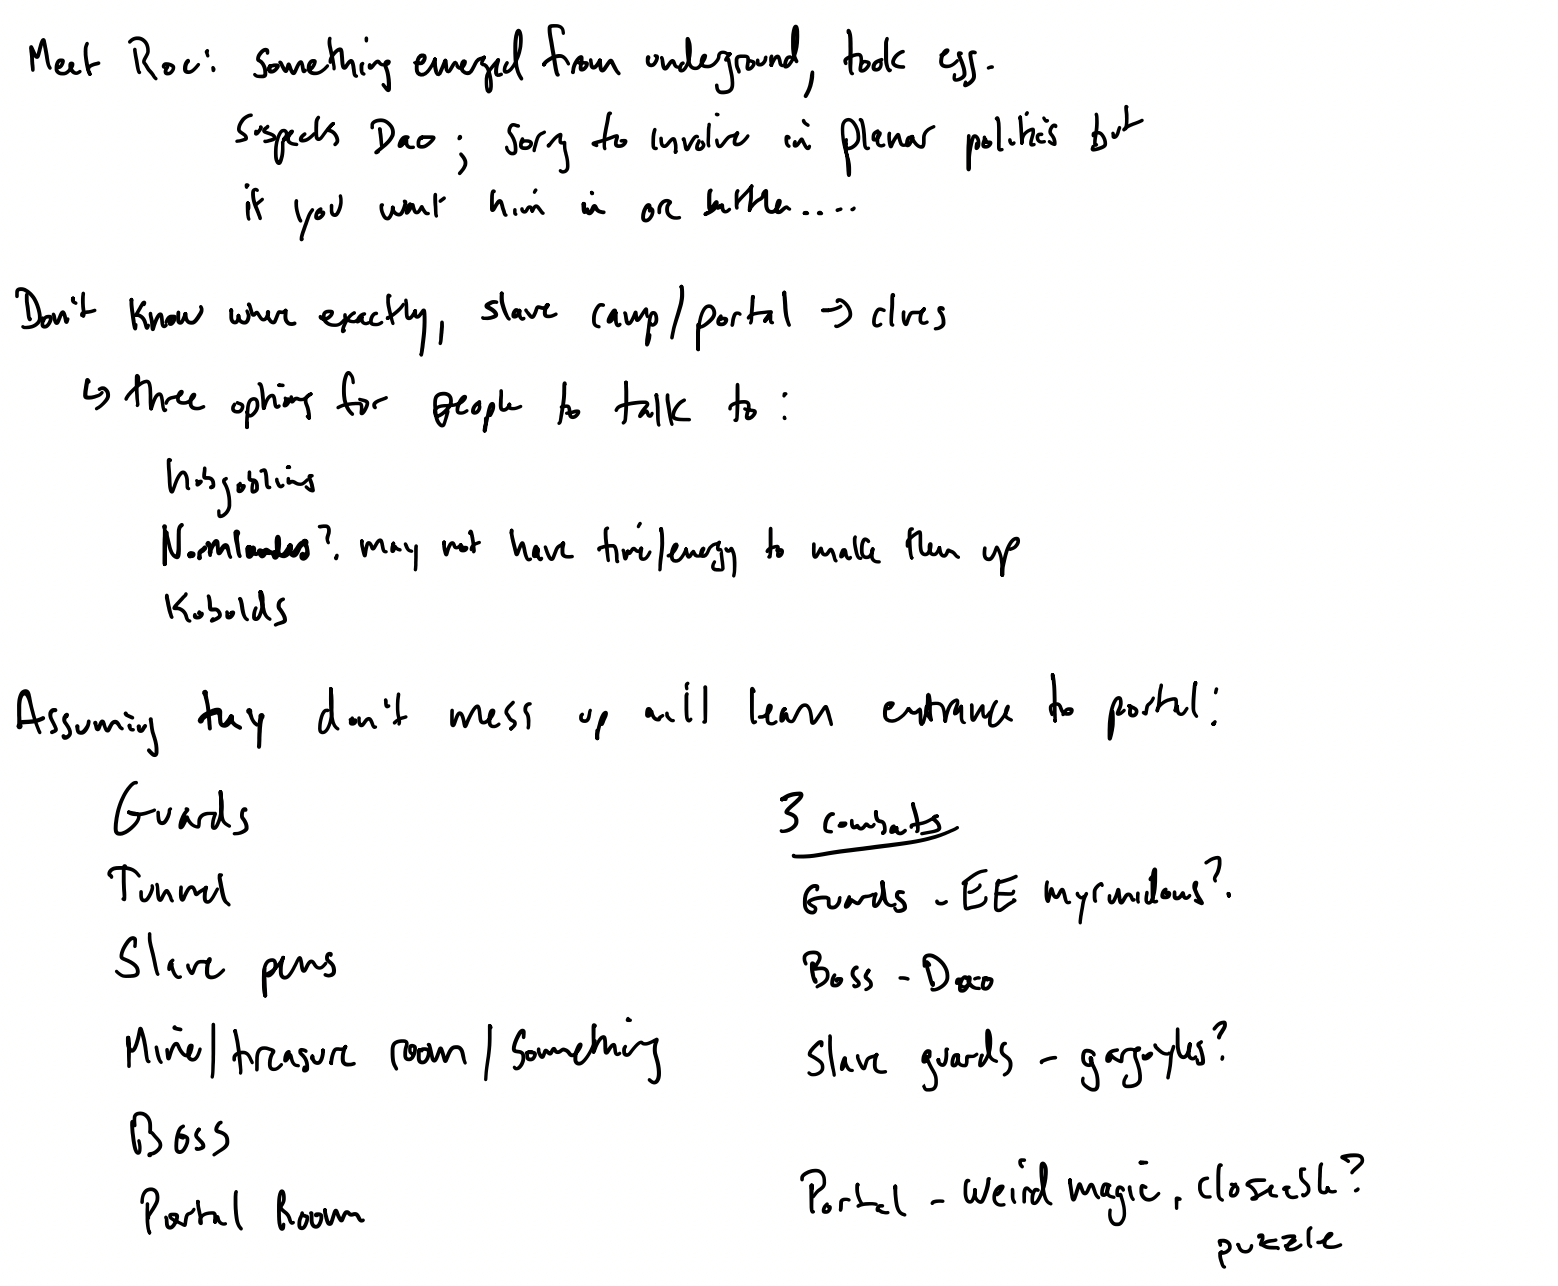 Meet Roc: something emerged from underground, took egg.
Suspects Dao; sorry to involve in planar politics but
if you want him in or battle....
Don't know where exactly, slave camp/portal → clues
↳ three options for people to talk to:
hobgoblins
Normlanders? may not have time/energy to make them up
Kobolds
Assuming they don't mess up will learn entrance to portal:
Guards
Tunnel
Slave pens
Mine/treasure room/something
Boss
Portal Room
3 combats
Guards - EE myrmidons?
Boss - Dao
Slave guards - gargoyles?
Portal - weird magic, closeable?
puzzle